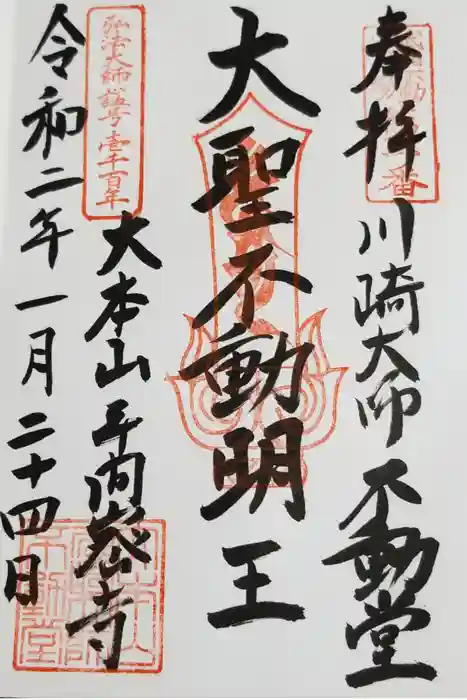 奉拝 川崎大师 不動堂
大聖不動明王
弘法大師諡号壱千百年
大本山 平间寺
令和二年一月二十四日